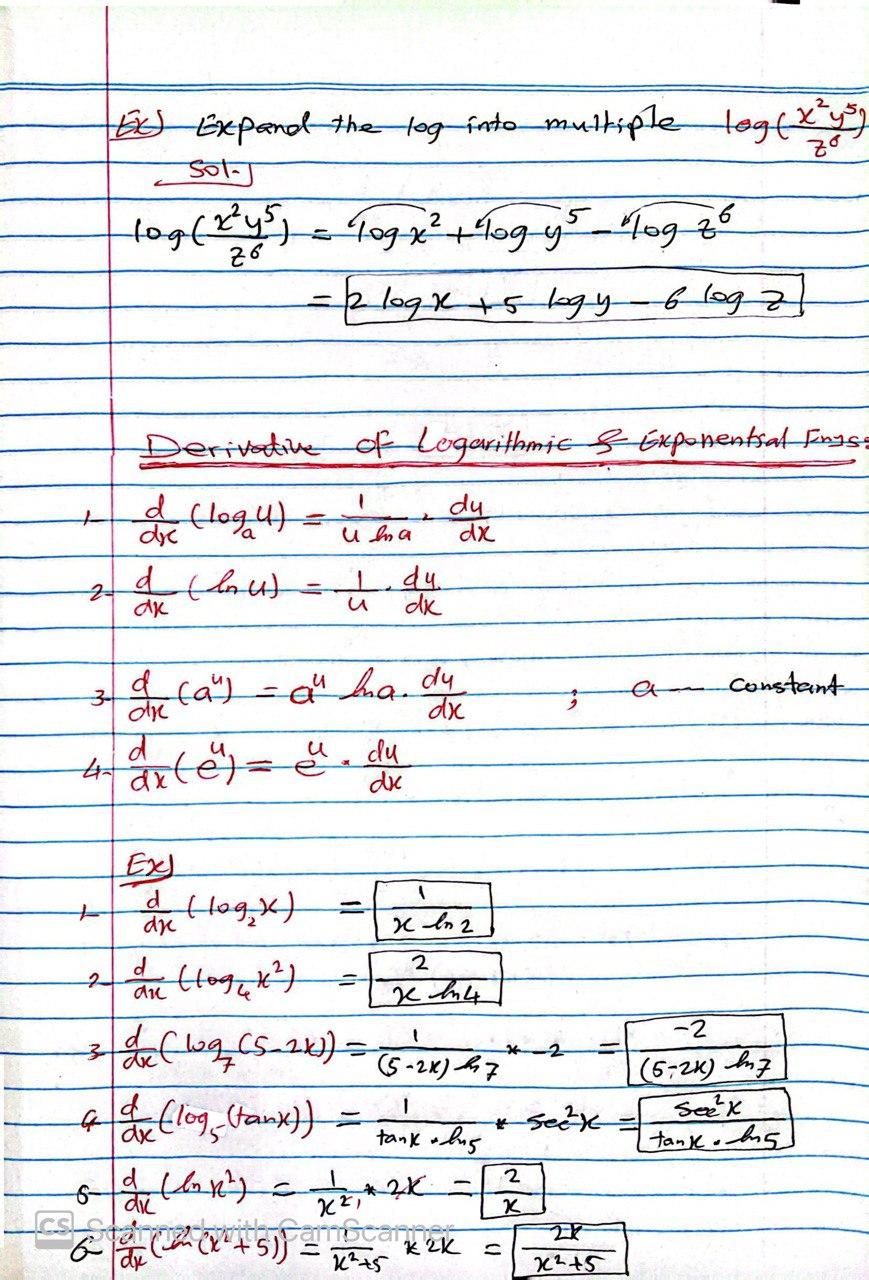 Ex) Expand the log into multiple log(x²y⁵/z⁶)
Sol.
log(x²y⁵/z⁶) = log x² + log y⁵ - log z⁶
= 2 log x + 5 log y - 6 log z
Derivative of Logarithmic & Exponential Fngs:
1- d/dx (logₐ u) = 1/(u ln a) · du/dx
2- d/dx (ln u) = 1/u · du/dx
3- d/dx (aᵘ) = aᵘ ln a · du/dx ; a — constant
4- d/dx (eᵘ) = eᵘ · du/dx
Ex)
1- d/dx (log₂ x) = 1/(x ln 2)
2- d/dx (log₄ x²) = 2/(x ln 4)
3- d/dx (log₇ (5-2x)) = 1/((5-2x) ln 7) * -2 = -2/((5-2x) ln 7)
4- d/dx (log₅ (tan x)) = 1/(tan x · ln 5) * sec² x = sec² x/(tan x · ln 5)
5- d/dx (ln x²) = 1/x² * 2x = 2/x
6- d/dx (ln (x²+5)) = 1/(x²+5) * 2x = 2x/(x²+5)
CS Scanned with CamScanner